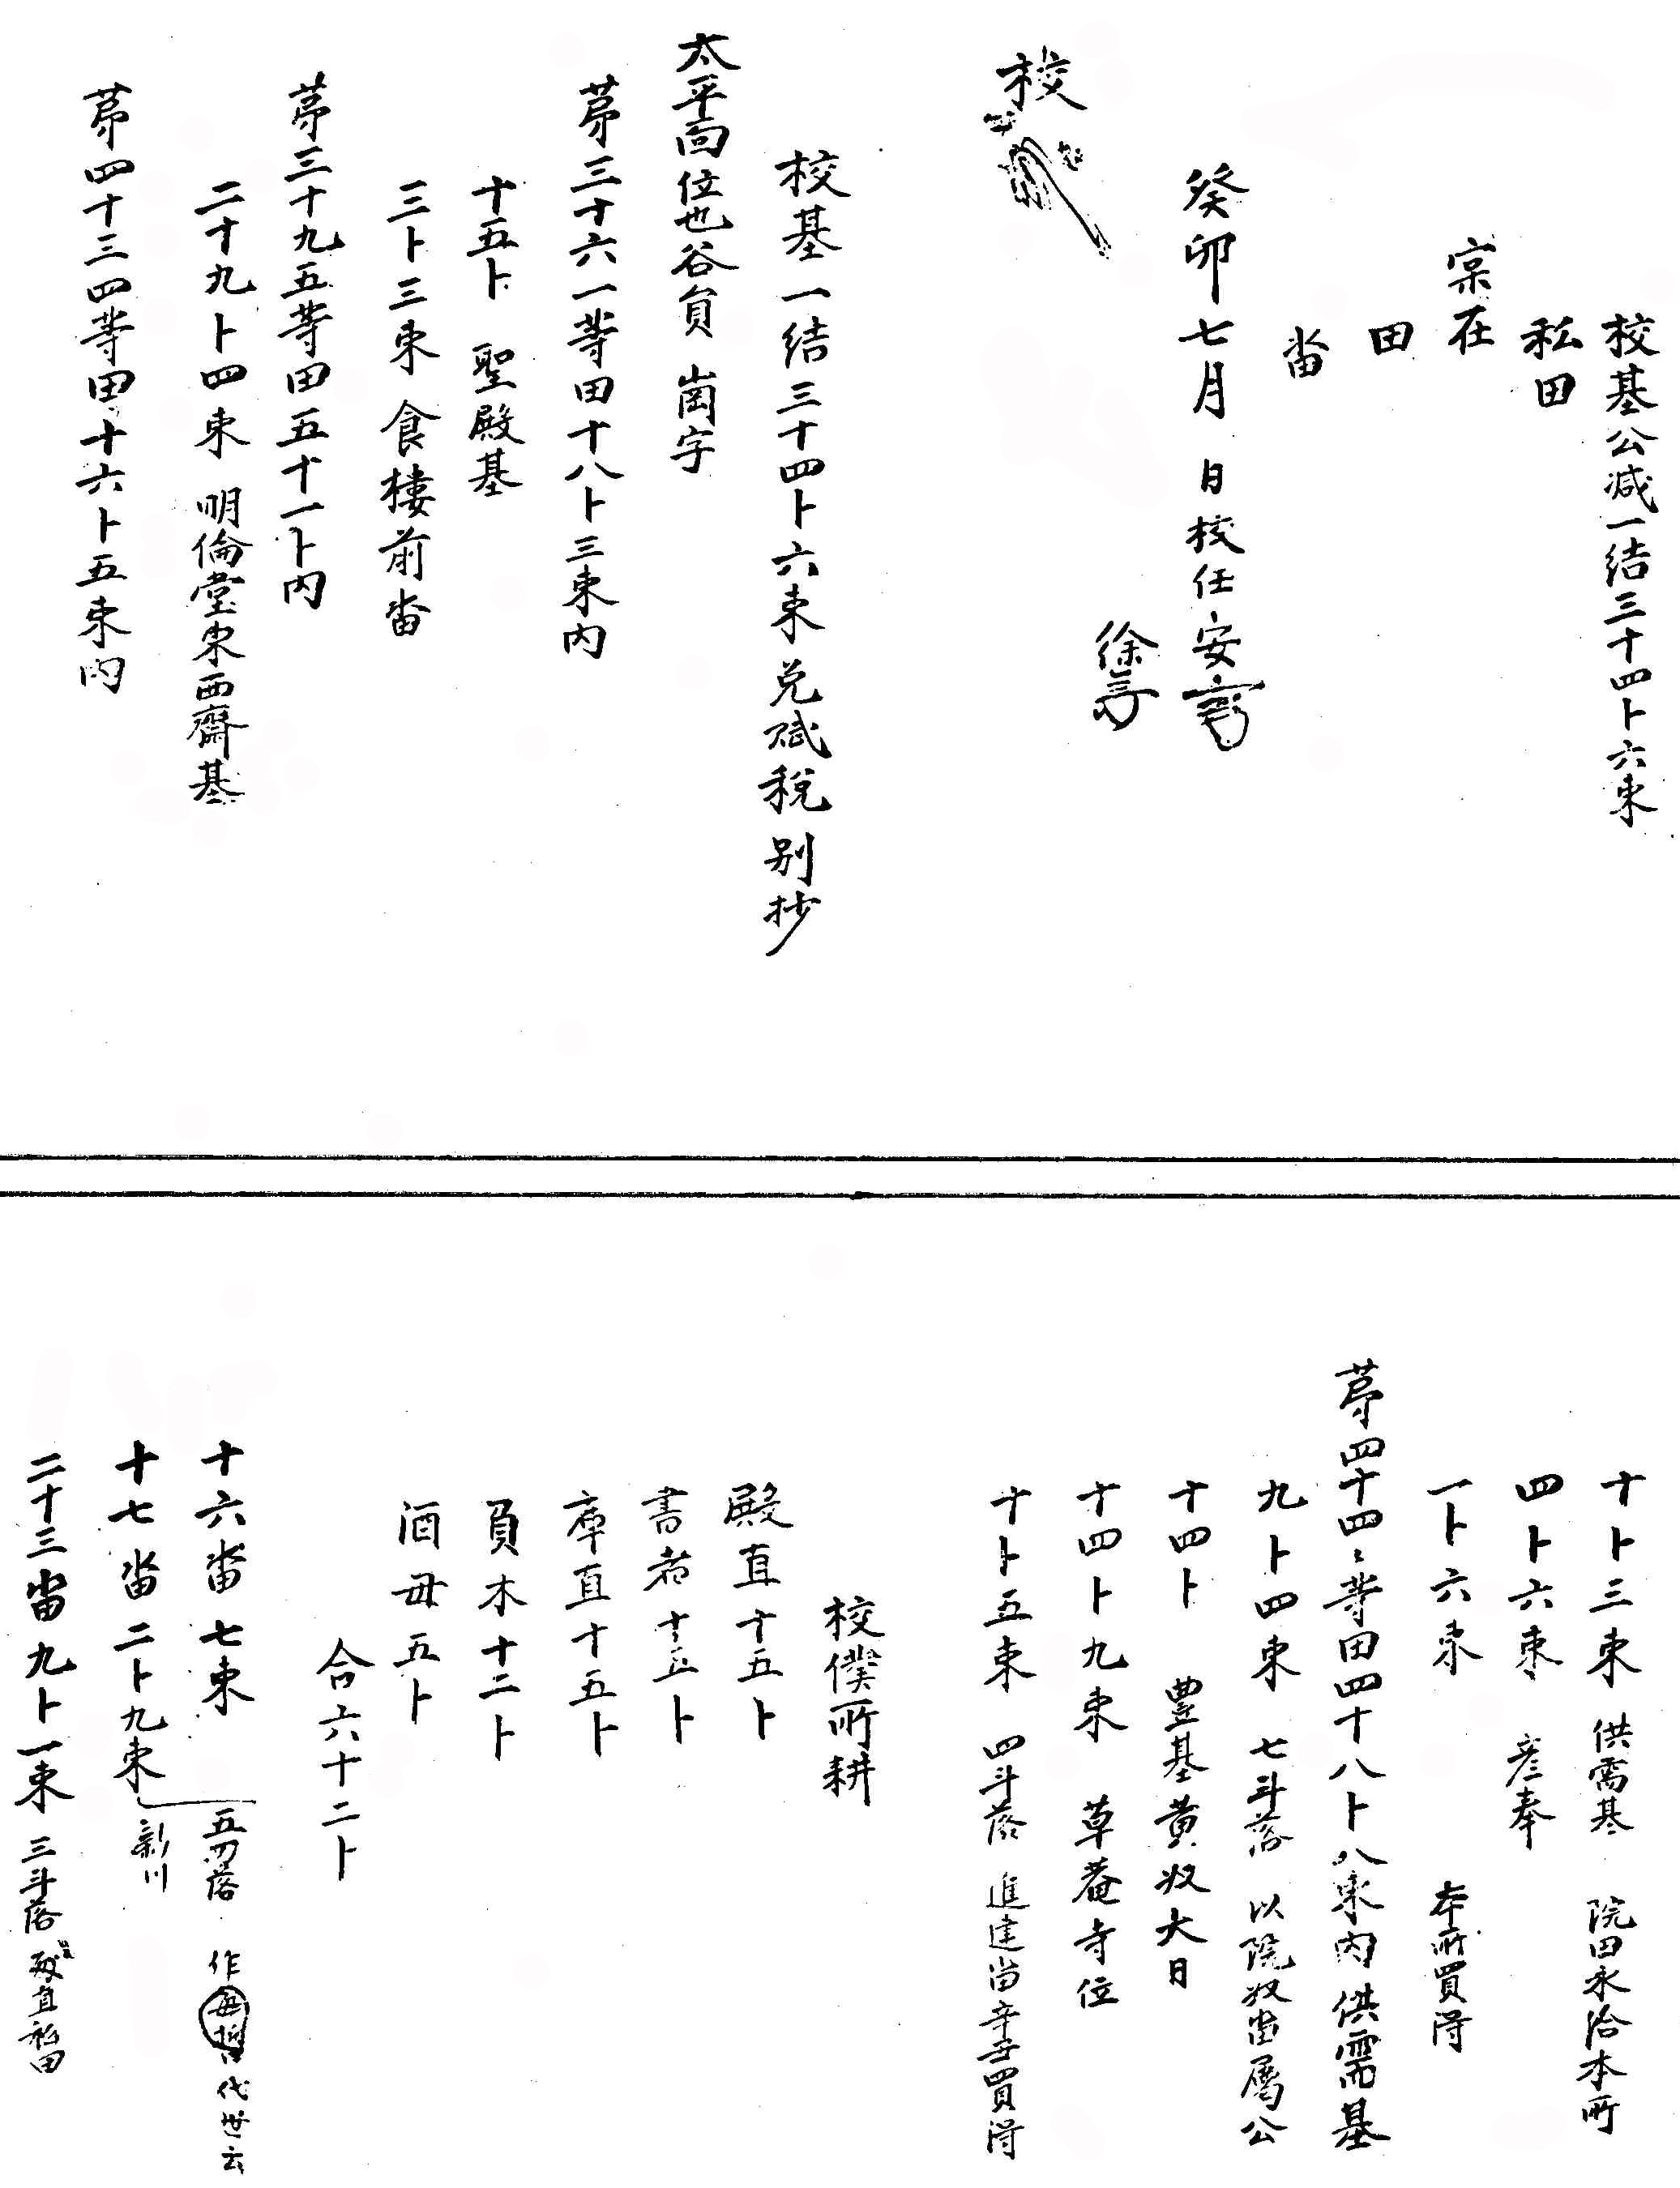 校基公减一结三十四卜六束
私田
宲在
田
畓
癸卯七月 日校任安
徐
校
校基一结三十四卜六束免赋税别抄
太平面位也谷員 崗字
苐三十六一等田十八卜三束內
十五卜 聖殿基
三卜三束 食樓前畓
苐三十九五等田五十一卜內
二十九卜四束 明倫堂東西齋基
苐四十三四等田十六卜五束內
十卜三束 供需基 院田永洽本所
四卜六束 彦奉
一卜六束 本所買得
苐四十四〻等田四十八卜八束內供需基
九卜四束 七斗落 以院奴畓屬公
十四卜 豊基黄奴大日
十四卜九束 草菴寺位
十卜五束 四斗落 進建畓辛丑買得
校僕所耕
殿直十五卜
書者十五卜
庫直十五卜
負木十二卜
酒母五卜
合六十二卜
十六畓七束 五刀落 作 代世云
十七畓二卜九束 新川
二十三畓九卜一束 三斗落 殿直私田